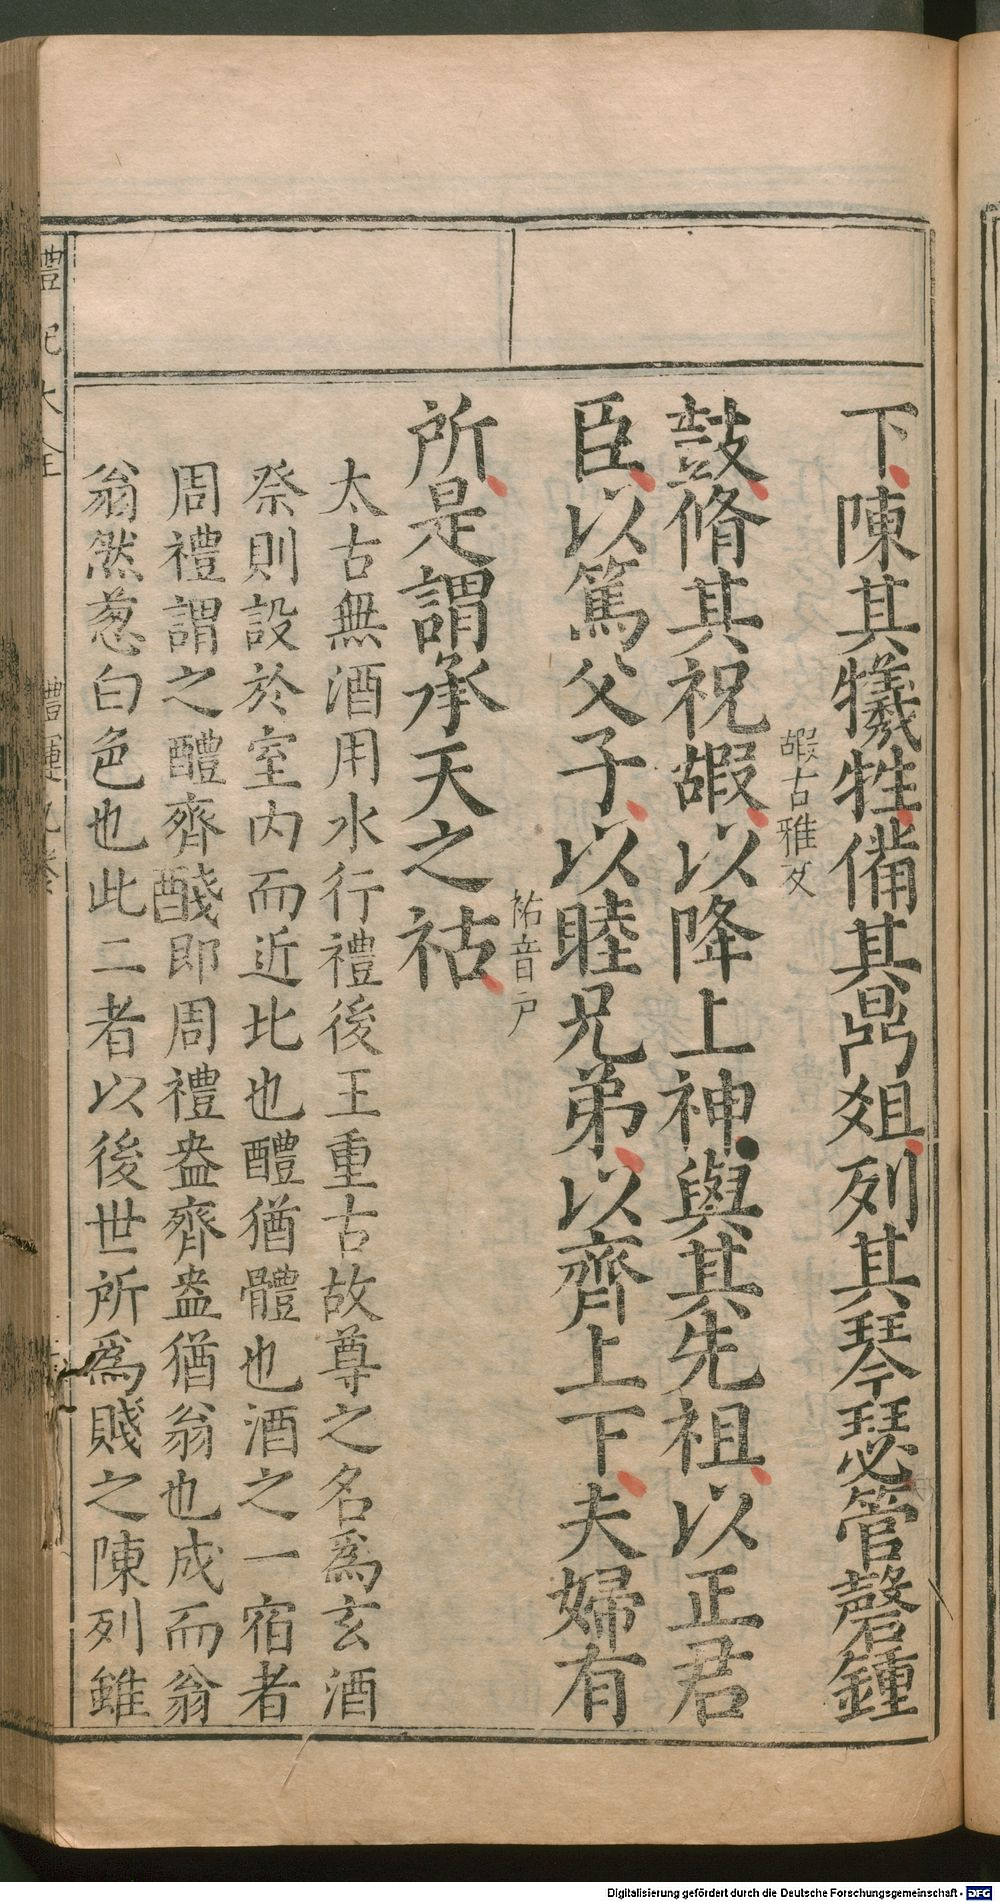 下陳其犧牲備其鼎俎列其琴瑟管磬鍾
嘏古雅反
鼓脩其祝嘏以降上神與其先祖以正君
臣以篤父子以睦兄弟以齊上下夫婦有
祜音戸
所是謂承天之祜
太古無酒用水行禮後王重古故尊之名爲玄酒
祭則設於室内而近北也醴猶體也酒之一宿者
周禮謂之醴齊醆即周禮盎齊盎猶翁也成而翁
翁然葱白色也此二者以後世所爲賤之陳列雖
禮記大全
禮運九卷
Digitalisierung gefördert durch die Deutsche Forschungsgemeinschaft - DFG